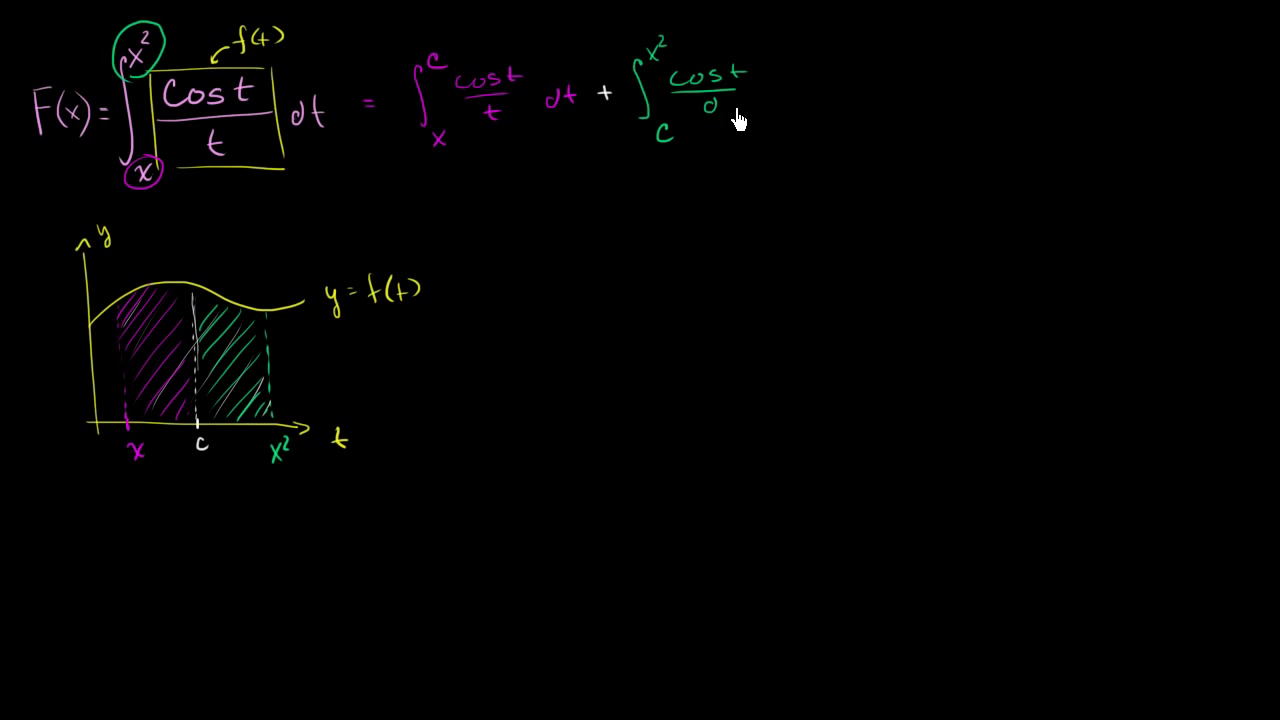 f(t)
F(x) = ∫_x^{x²} cos t / t dt = ∫_x^c cos t / t dt + ∫_c^{x²} cos t / d
y
y = f(t)
x c x² t